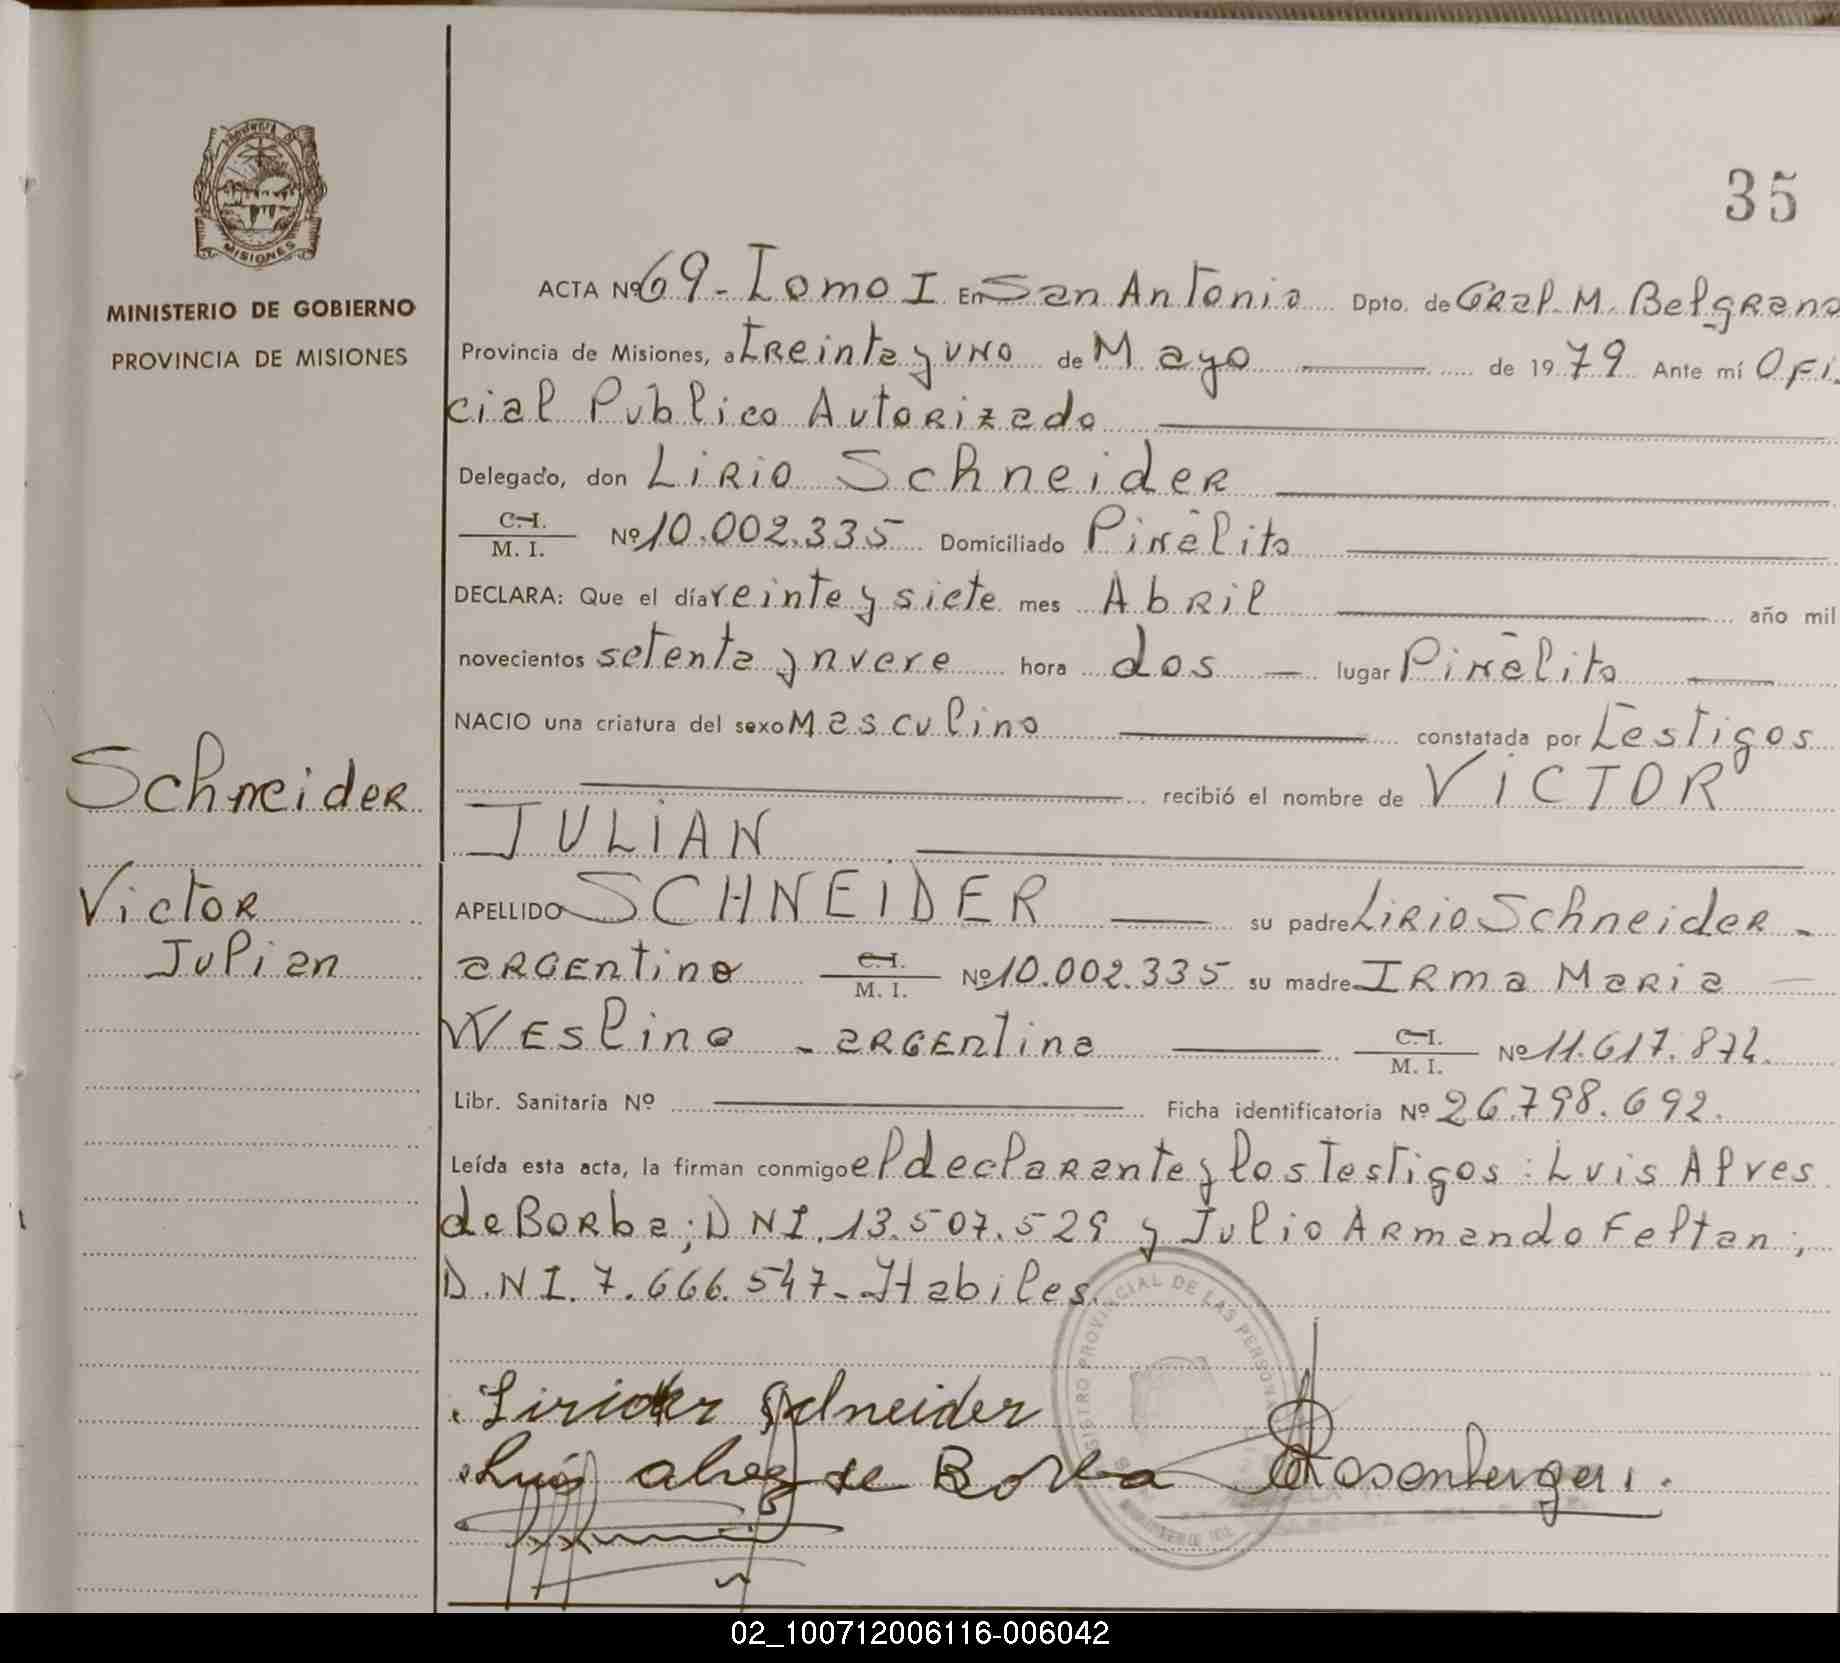 35
MISIONES
MINISTERIO DE GOBIERNO
PROVINCIA DE MISIONES
ACTA Nº 69 - Tomo I En San Antonio Dpto. de Gral. M. Belgrano
Provincia de Misiones, a treinta y uno de Mayo de 1979 Ante mí Ofi.
cial Publico Autorizado
Delegado, don Lirio Schneider
C.I.
M. I. Nº 10.002.335 Domiciliado Piñalito
DECLARA: Que el día veinte y siete mes Abril año mil
novecientos setenta y nueve hora dos lugar Piñalito
NACIO una criatura del sexo Masculino constatada por testigos
recibió el nombre de VICTOR
JULIAN
Schneider
Victor
Julian
APELLIDO SCHNEIDER su padre Lirio Schneider -
argentino C.I.
M. I. Nº 10.002.335 su madre Irma Maria
Weslino - argentina C.I.
M. I. Nº 11.617.874.
Libr. Sanitaria Nº Ficha identificatoria Nº 26.798.692.
Leída esta acta, la firman conmigo el declarante y los testigos: Luis Alves
de Borba; D N I. 13.507.529 y Julio Armando Feltan;
D.N I. 7.666.547 - Habiles.
REGISTRO PROVINCIAL DE LAS PERSONAS
Schneider
Luis alves de Borba Rosenberger
02_100712006116-006042